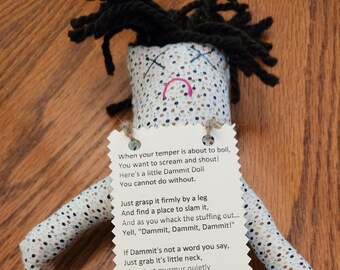 When your temper is about to boil,
You want to scream and shout!
Here's a little Dammit Doll
You cannot do without.
Just grasp it firmly by a leg
And find a place to slam it,
And as you whack the stuffing out...
Yell, "Dammit, Dammit, Dammit!"
If Dammit's not a word you say,
Just grab it's little neck,
murmur quietly